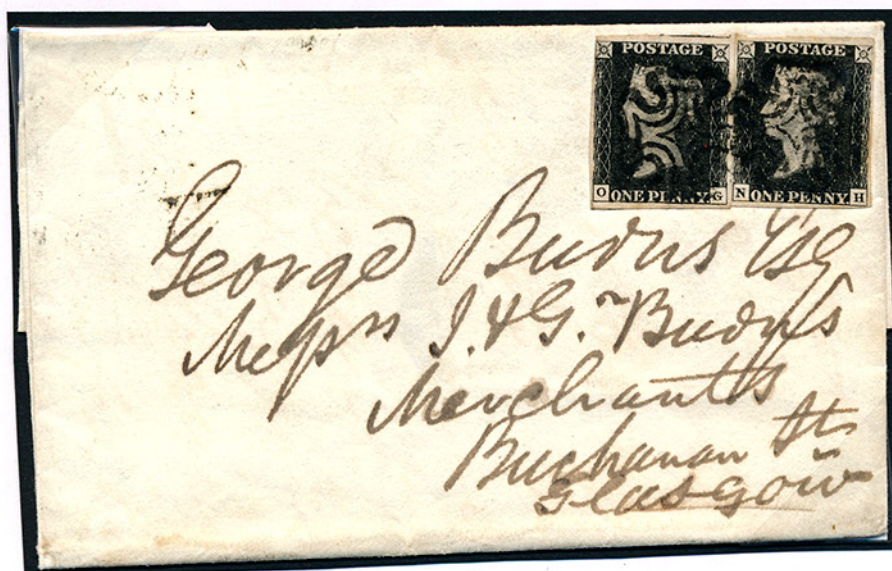 POSTAGE POSTAGE
O ONE PENNY G N ONE PENNY H
George Burns Esq
Messrs J. & G. Burns
Merchants
Buchanan St
Glasgow